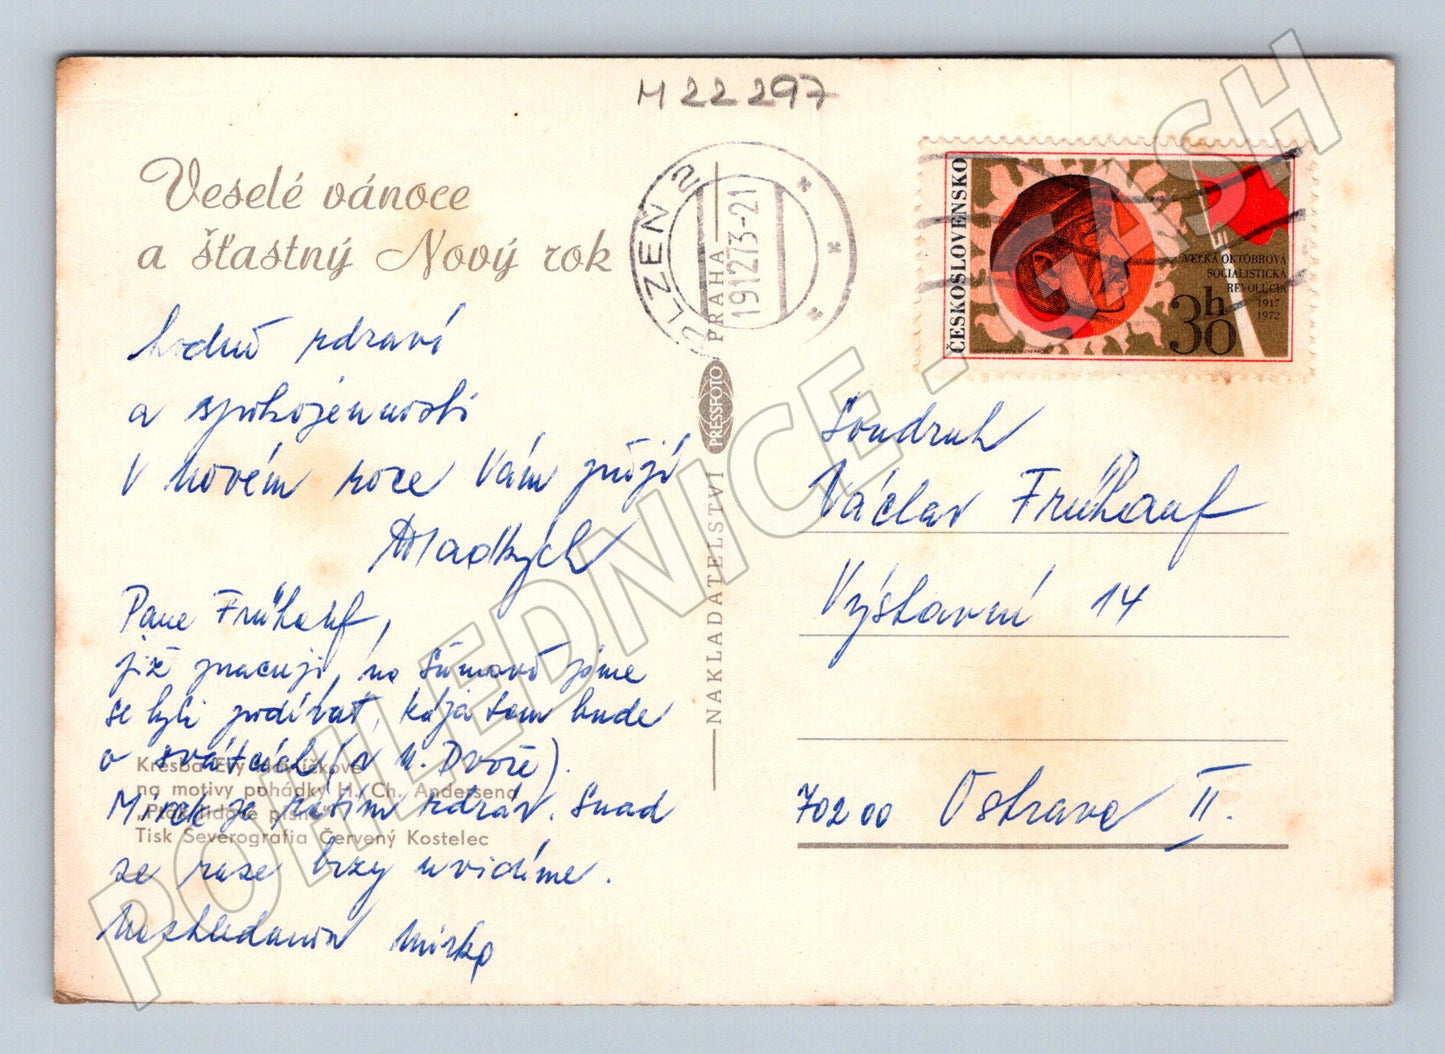 M 22 297
Veselé vánoce
a šťastný Nový rok
hodně zdraví
a spokojennosti
v novém roce Vám přejí
Hladkých
Pane Frühauf,
již pracuji, na Šumavě jsme
se byli podívat, Kája tam bude
o svátcích (v N. Dvoře).
Mirek je zatím zdráv. Snad
se zase brzy uvidíme.
Nashledanou Mirka
Kresba Evy
na motivy pohádky H. Ch. Andersena
Tisk Severografia Červený Kostelec
NAKLADATELSTVÍ PRESSFOTO PRAHA
PLZEŇ 2
19.12.73-21
ČESKOSLOVENSKO
VEĽKÁ OKTÓBROVÁ
SOCIALISTICKÁ
REVOLÚCIA
1917
1972
30h
Soudruh
Václav Frühauf
Výstavní 14
702 00 Ostrava II.
POHLEDNICE - CASH